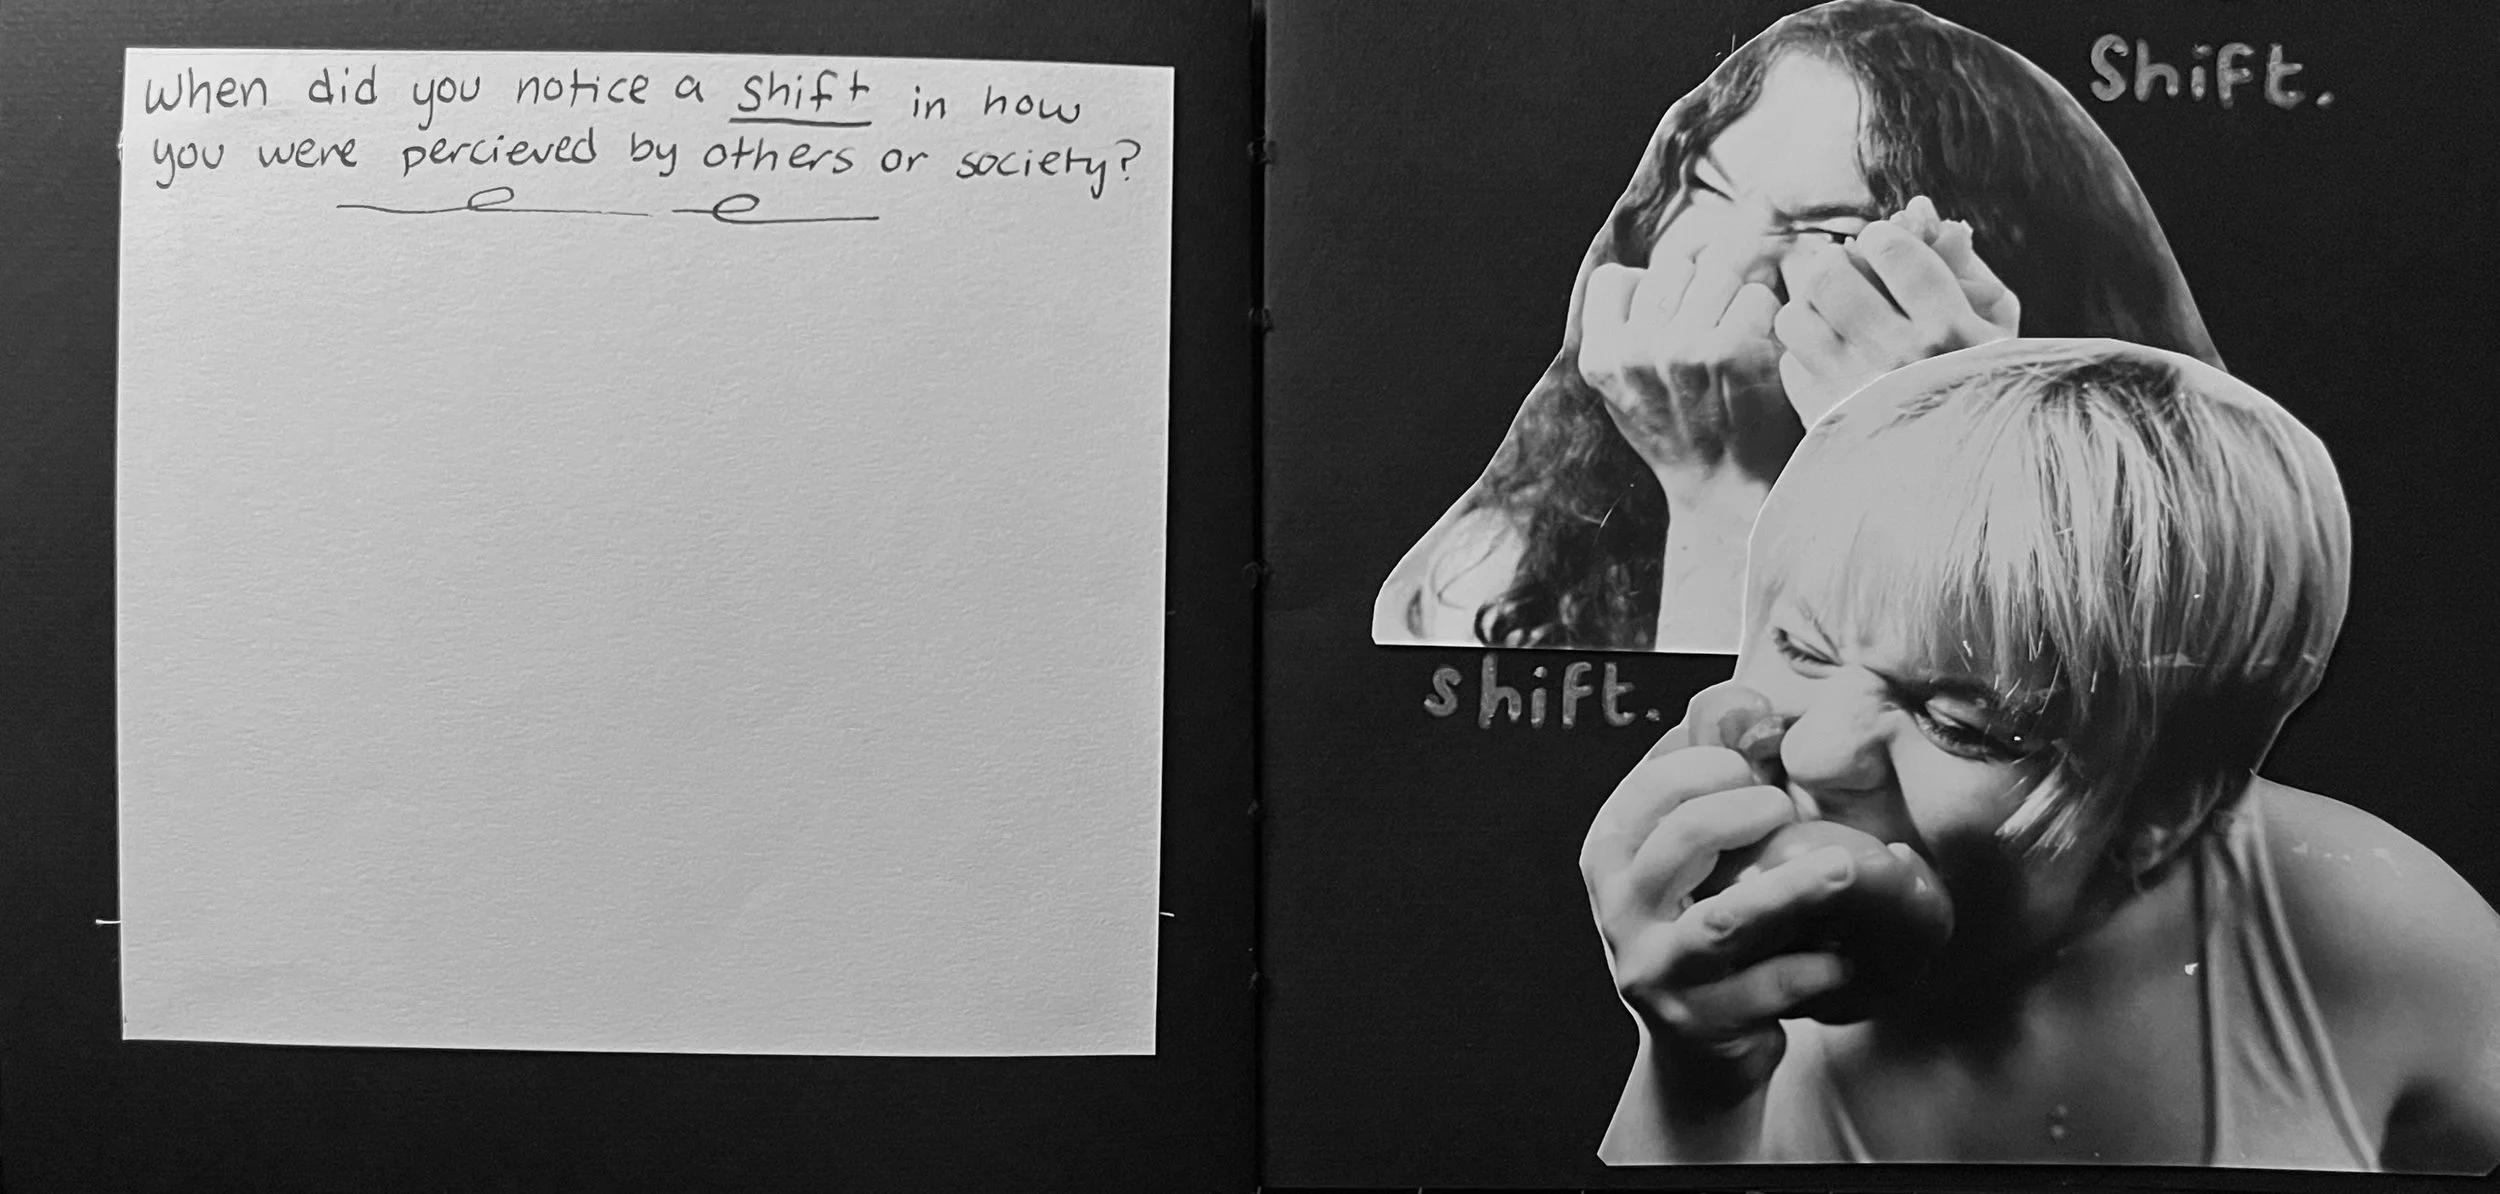 When did you notice a shift in how
you were percieved by others or society?
Shift.
shift.